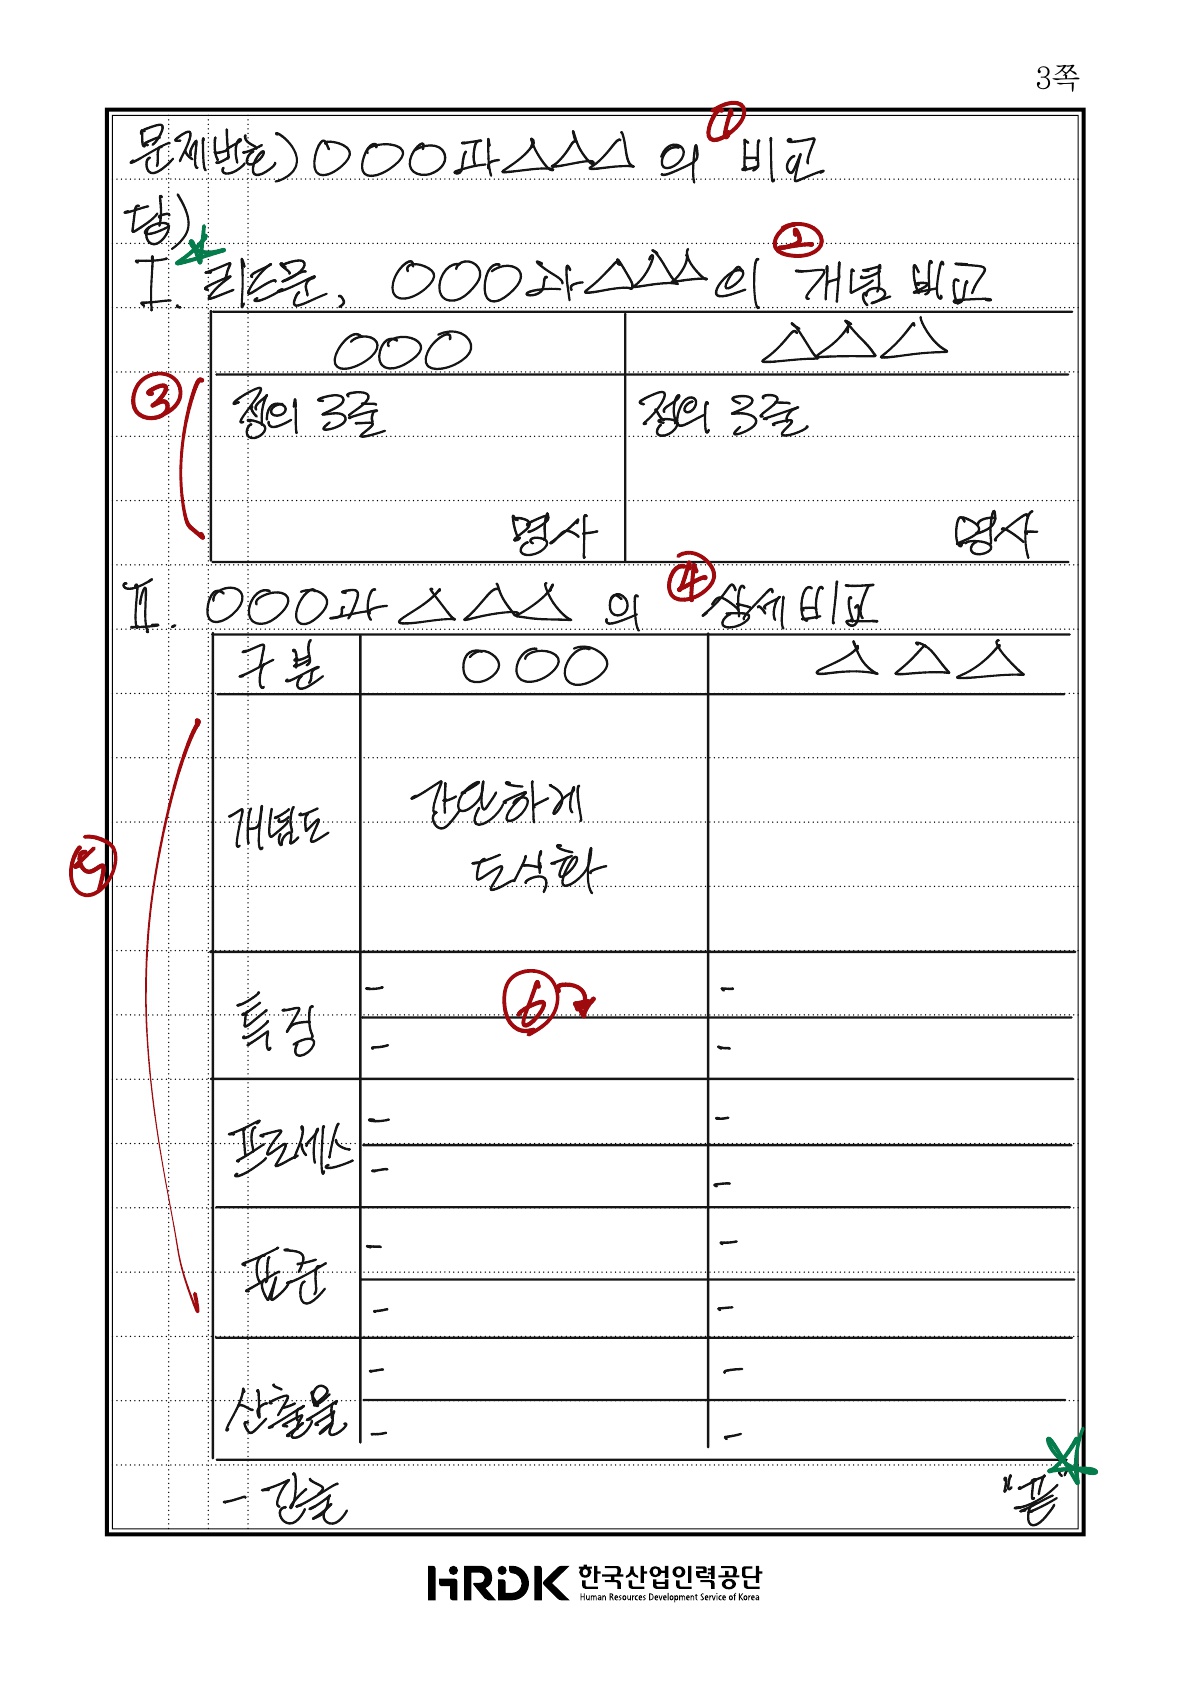 3쪽
①
문제번호) ○○○과 △△△ 의 비교
답)
②
I. 리드문, ○○○과 △△△의 개념 비교
○○○ △△△
③
정의 3줄 정의 3줄
명사 명사
④
II. ○○○과 △△△ 의 상세 비교
구분 ○○○ △△△
간단하게
개념도
⑤
도식화
- ⑥ -
특징
- -
- -
프로세스
- -
- -
표준
- -
- -
산출물
- -
- 단글 "끝"
HRDK 한국산업인력공단
Human Resources Development Service of Korea